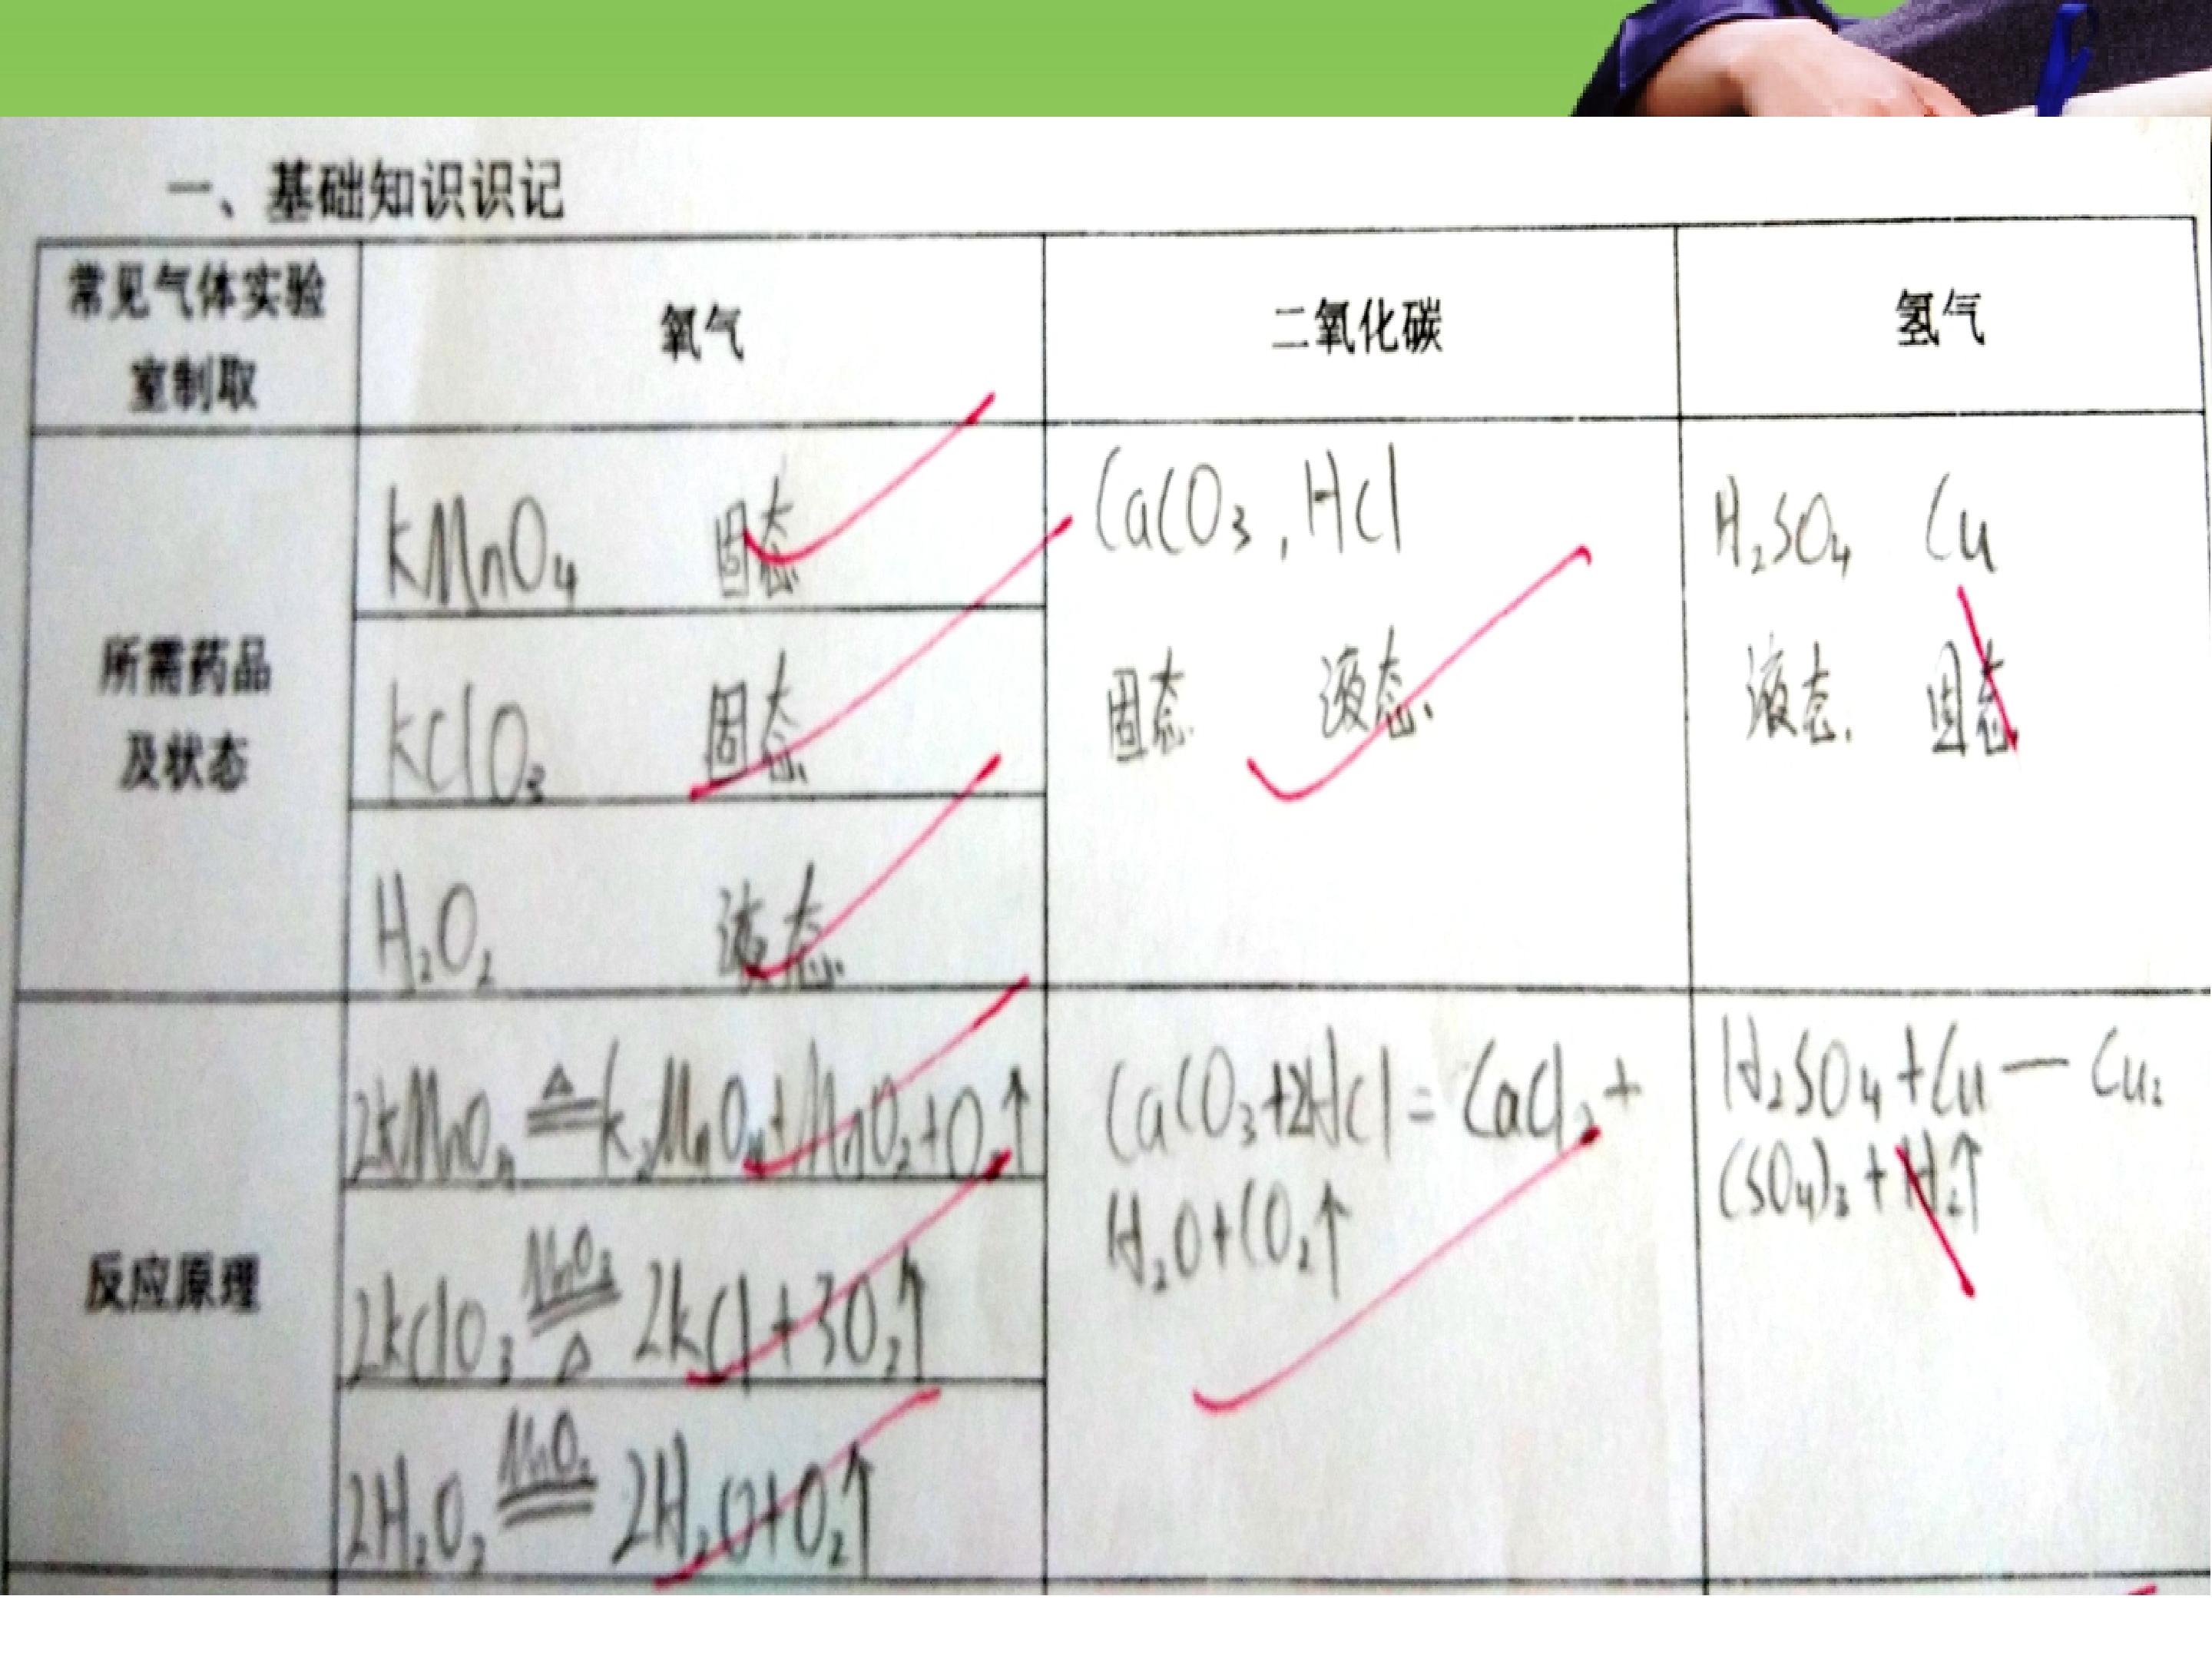 一、基础知识识记
常见气体实验
室制取
氧气
二氧化碳
氢气
所需药品
及状态
KMnO₄ 固态
KClO₃ 固态
H₂O₂ 液态
CaCO₃, HCl
固态 液态.
H₂SO₄ Cu
液态. 固态
反应原理
2KMnO₄ ≜ K₂MnO₄+MnO₂+O₂↑
2KClO₃ MnO₂ ══ △ 2KCl+3O₂↑
2H₂O₂ MnO₂ ══ 2H₂O+O₂↑
CaCO₃+2HCl = CaCl₂+
H₂O+CO₂↑
H₂SO₄+Cu — Cu₂
(SO₄)₃+H₂↑